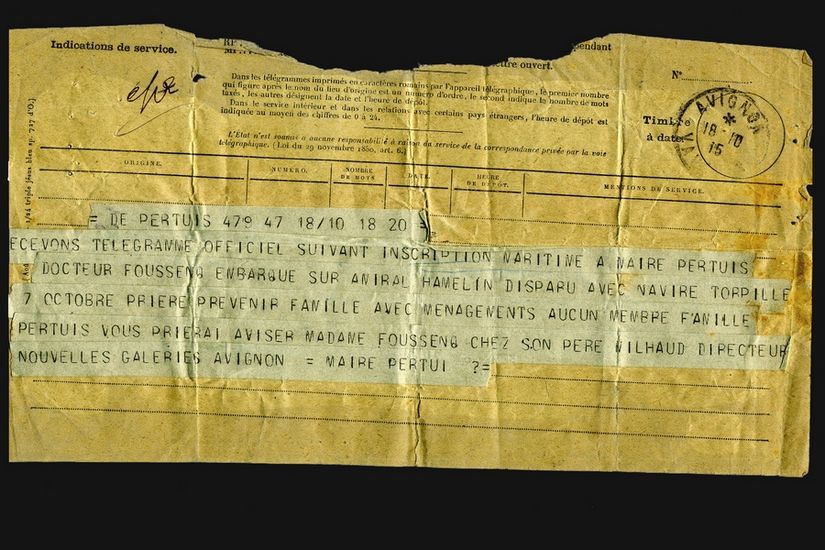 Indications de service.
pendant
ettre ouvert.
Dans les télégrammes imprimés en caractères romains par l'appareil télégraphique, le premier nombre
qui figure après le nom du lieu d'origine est un numéro d'ordre, le second indique le nombre de mots
taxés, les autres désignent la date et l'heure de dépôt.
Dans le service intérieur et dans les relations avec certains pays étrangers, l'heure de dépôt est
indiquée au moyen des chiffres de 0 à 24.
L'État n'est soumis à aucune responsabilité à raison du service de la correspondance privée par la voie
télégraphique. (Loi du 29 novembre 1850, art. 6.)
N°
Timbre
à date
AVIGNON
18-10
15
ORIGINE. NUMÉRO. NOMBRE DE MOTS DATE. HEURE DE DÉPÔT. MENTIONS DE SERVICE.
= DE PERTUIS 479 47 18/10 18 20
ECEVONS TELEGRAMME OFFICIEL SUIVANT INSCRIPTION MARITIME A MAIRE PERTUIS
DOCTEUR FOUSSENG EMBARQUE SUR AMIRAL HAMELIN DISPARU AVEC NAVIRE TORPILLE
7 OCTOBRE PRIERE PREVENIR FAMILLE AVEC MENAGEMENTS AUCUN MEMBRE F'AMILLE
PERTUIS VOUS PRIERAI AVISER MADAME FOUSSENG CHEZ SON PERE MILHAUD DIRECTEUR
NOUVELLES GALERIES AVIGNON = MAIRE PERTUI ?=